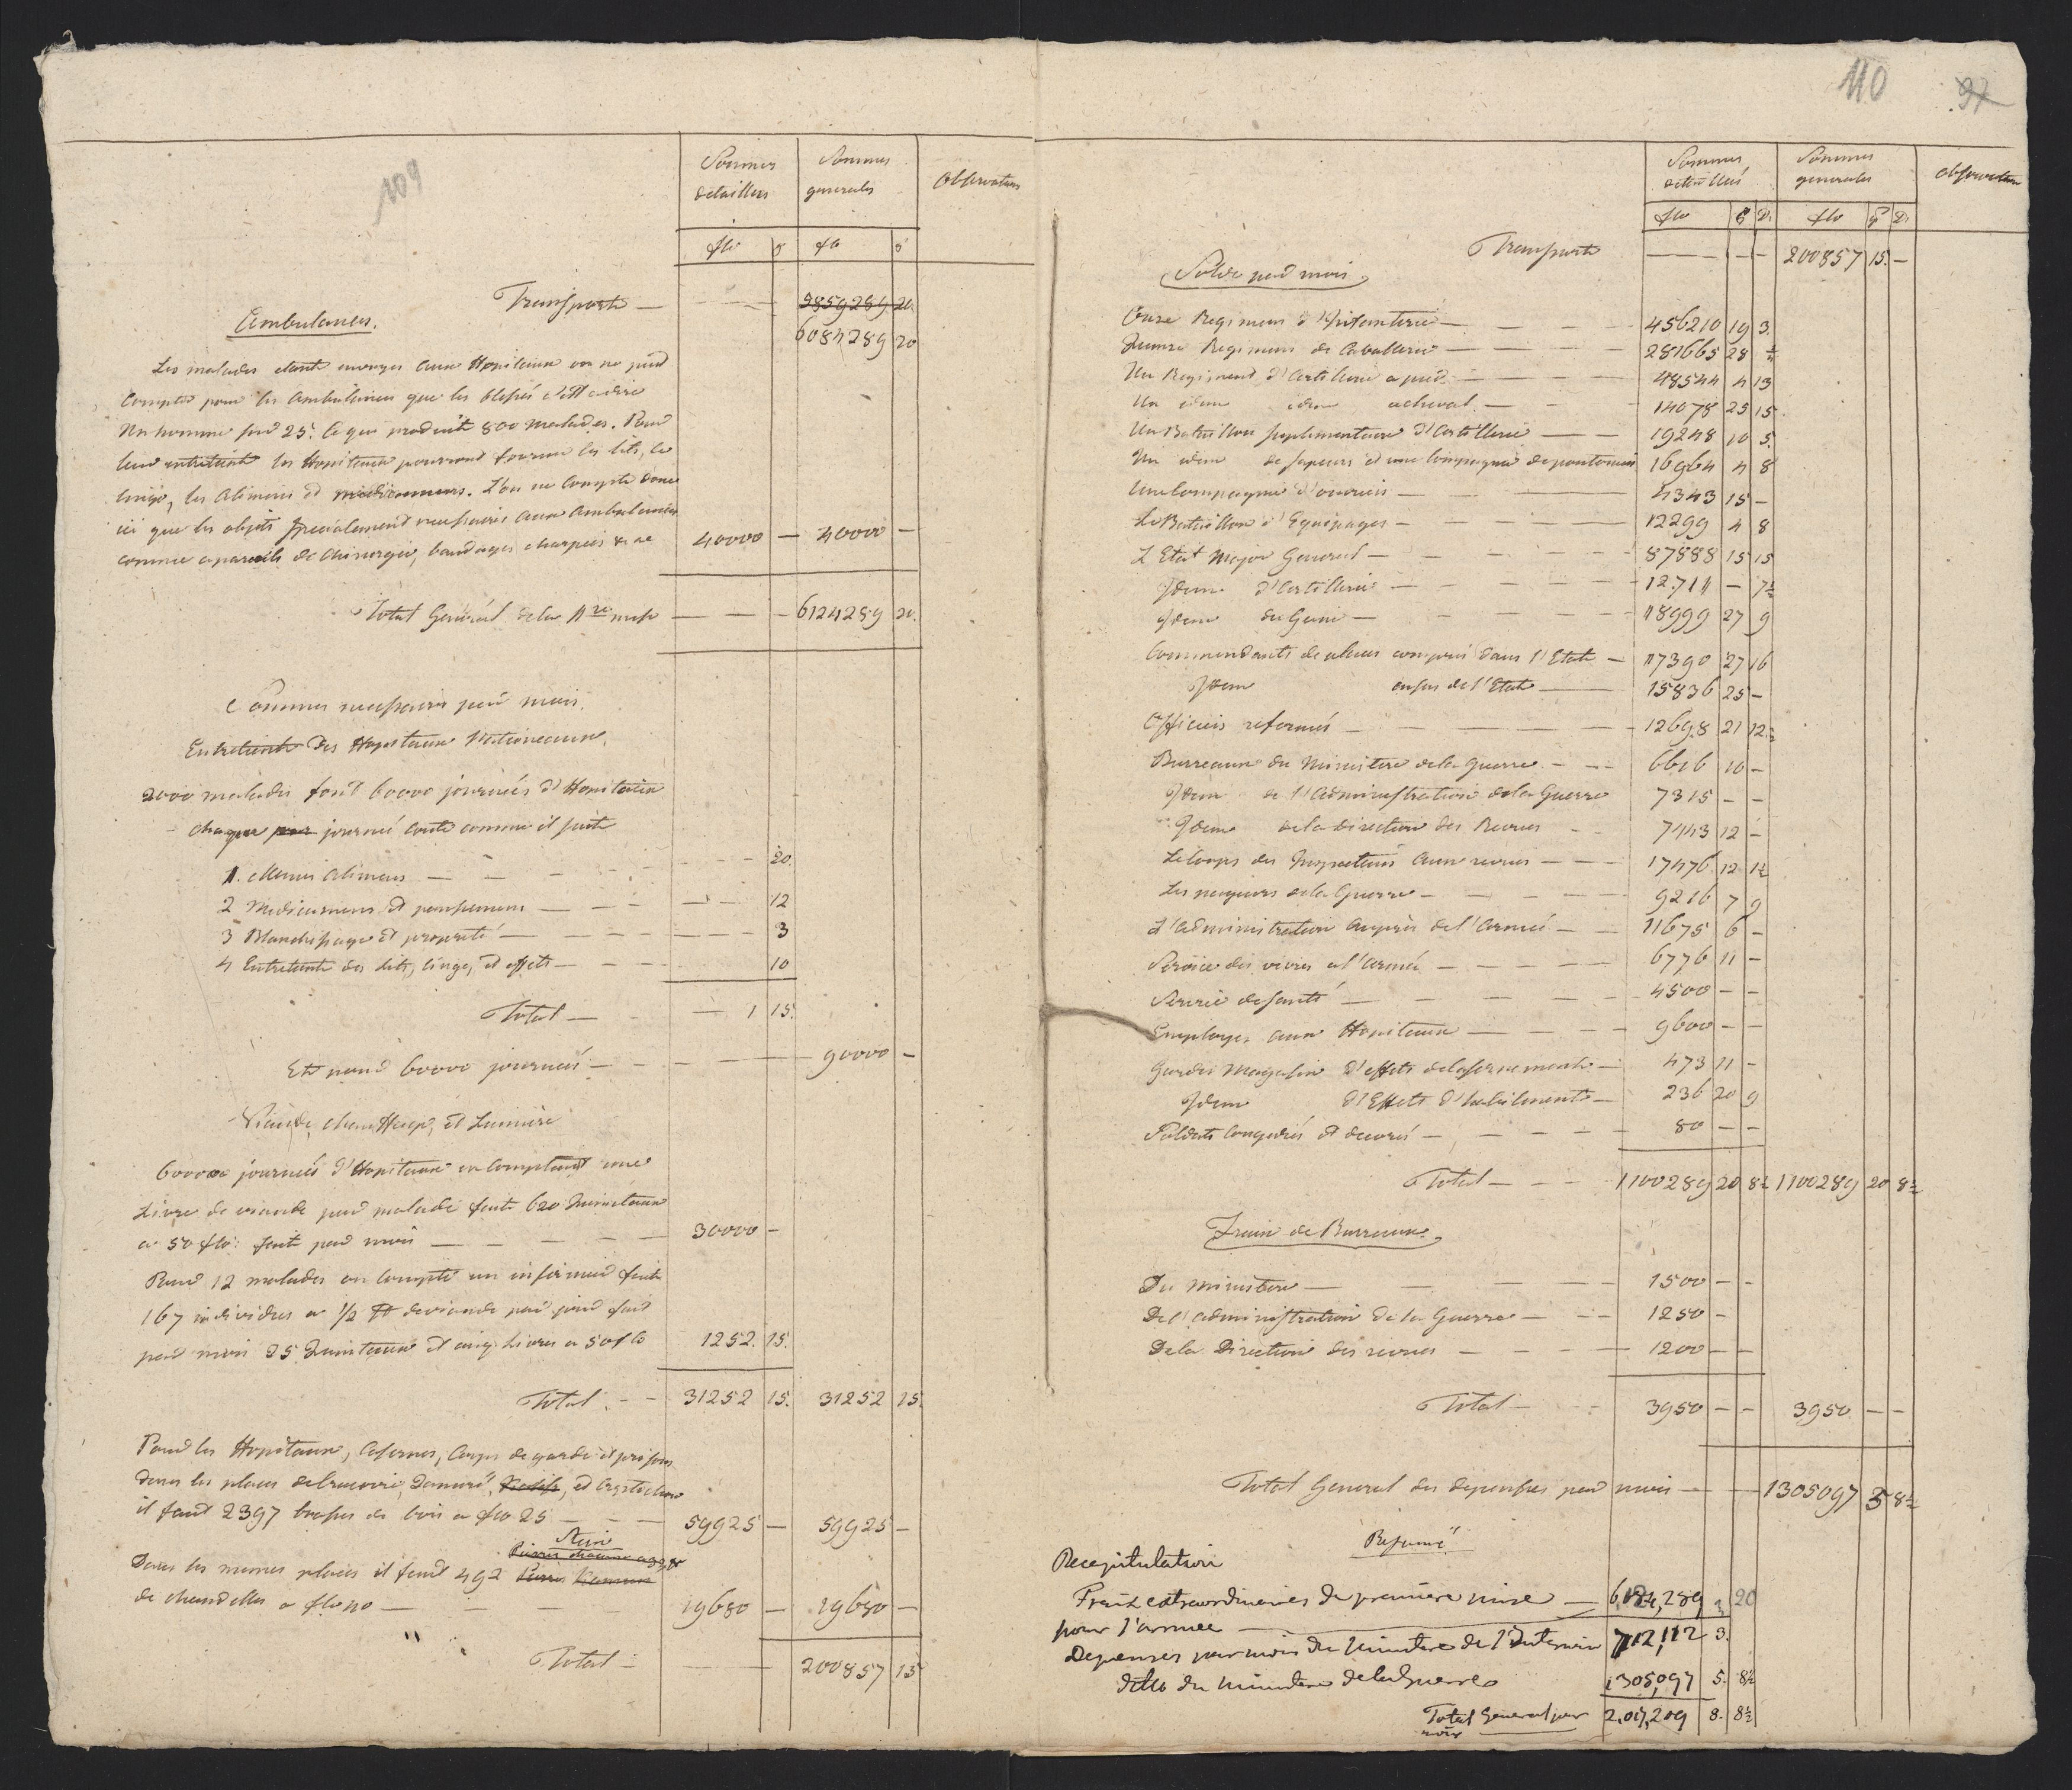 109
Sommes detaillees | Sommes generales | Observations
flo | g | flo | g
Transport — 9859289 20
6084289 20
Ambulances.
Les malades etant envoyes aux Hopitaux on ne peut
compter pour les Ambulances que les blessés c'est a dire
Un homme sur 25. ce que produit 800 malades. Pour
leur entretient les Hopitaux pourront fournir les lits, le
linge, les Alimens et medicamens. L'on ne compte donc
ici que les objets specialement necessaires aux Ambulances
comme apareils de chirurgie, bandages charpies &c &c 40000 — 40000 —
Total General de la 1re mise — — — 6124289 20.
Sommes necessaires par mois.
Entretient des Hopitaux Nationaux.
2000 malades font 60000 journées d'Hopitaux
chaque par journée coute comme il suit
1. Menus Alimens — — 20.
2 Medicamens et pensemens — — 12
3 Blanchissage et propreté — — 3
4 Entretient des lits, linge, et effets — — 10
Total — 1 15.
Et pour 60000 journées — 90000 —
Viande, chauffage, et Lumiere
60000 journées d'Hopitaux en comptant une
Livre de viande par malade font 600 Quintaux
a 50 flo: font par mois — 30000 —
Pour 12 malades on compte un infirmier font
167 individus a 1/2 ℔ de viande par jour font
par mois 25 Quintaux et cinq Livres a 50 flo 1252. 15.
Total. — 31252 15. 31252 15.
Pour les Hopitaux, Casernes, Corps de garde et prisons
dans les places de Cracovie, Zamosc, et Czestochow
il faut 2397 brasses de bois a flo 25 — 59925 — 59925 —
Stein
Pierres chacune a 32 ℔
Dans les memes places il faut 492 Pierres
de chandelles a flo 40 — 19680 — 19680 —
Total — 200857 15
110 97
Sommes detaillées | Sommes generales | Observation
flo | g | D. | flo | g | D.
Transport — — — 200857 15. —
Solde par mois
Onze Regimens d'Infanterie — 456210 19 3.
Quinze Regimens de Cavallerie — 281665 28 ½
Un Regiment d'Artillerie a pied — 48544 4 13
Un idem idem acheval — 14078 25 15.
Un Bataillon suplementaire d'Artillerie — 19248 10 5.
Un idem de sapeurs et une compagnie de pontoniers 16964 4 8
Une Compagnie d'ouvriers — 4343 15 —
Le Bataillon d'Equipages — 12299 4 8
L'Etat Major General — 87888 15 15
Idem d'Artillerie — 12711 — 7½
Idem du Genie — 18999 27 9
Commendants de places compris dans l'Etat — 17390 27 16
Idem ensus de l'Etat — 15836 25 —
Officiers reformés — 12698 21 12½
Burreaux du Ministere de la Guerre — 6616 10 —
Idem de l'Administration de la Guerre 7315 — —
Idem de la direction des Revues 7443 12 —
Le Corps des Inspecteurs aux revues — 17476 12 1½
Les payeurs de la Guerre — 9216 7 9
L'Administration auprès de l'Armée — 11675 6 —
Service des vivres a l'armée — 6776 11 —
Service de santé — 4500 — —
Employes aux Hopitaux — 9600 — —
Gardes Magasin d'effets de casernement — 473 11 —
Idem d'Effets d'habillements — 236 20 9
Soldats congediés et decorés — 80 — —
Total — 1100289 20 8½ 1100289 20 8½
Frais de Burreaux.
Du Ministere — 1500 — —
De l'administration de la Guerre — 1250 —
De la Direction des revues — 1200 — —
Total — 3950 — — 3950 — —
Total General des depenses par mois — 1305097 5 8½
Resumé
Recapitulation
Fraix extraordinaires de première mise — 6,124,289 20
pour l'armée
Depenses par mois du Ministere de l'Interieur 712,112 3.
ditto du Ministere de la Guerre 1305,097 5. 8½
Total General par 2,017,209 8. 8½
mois